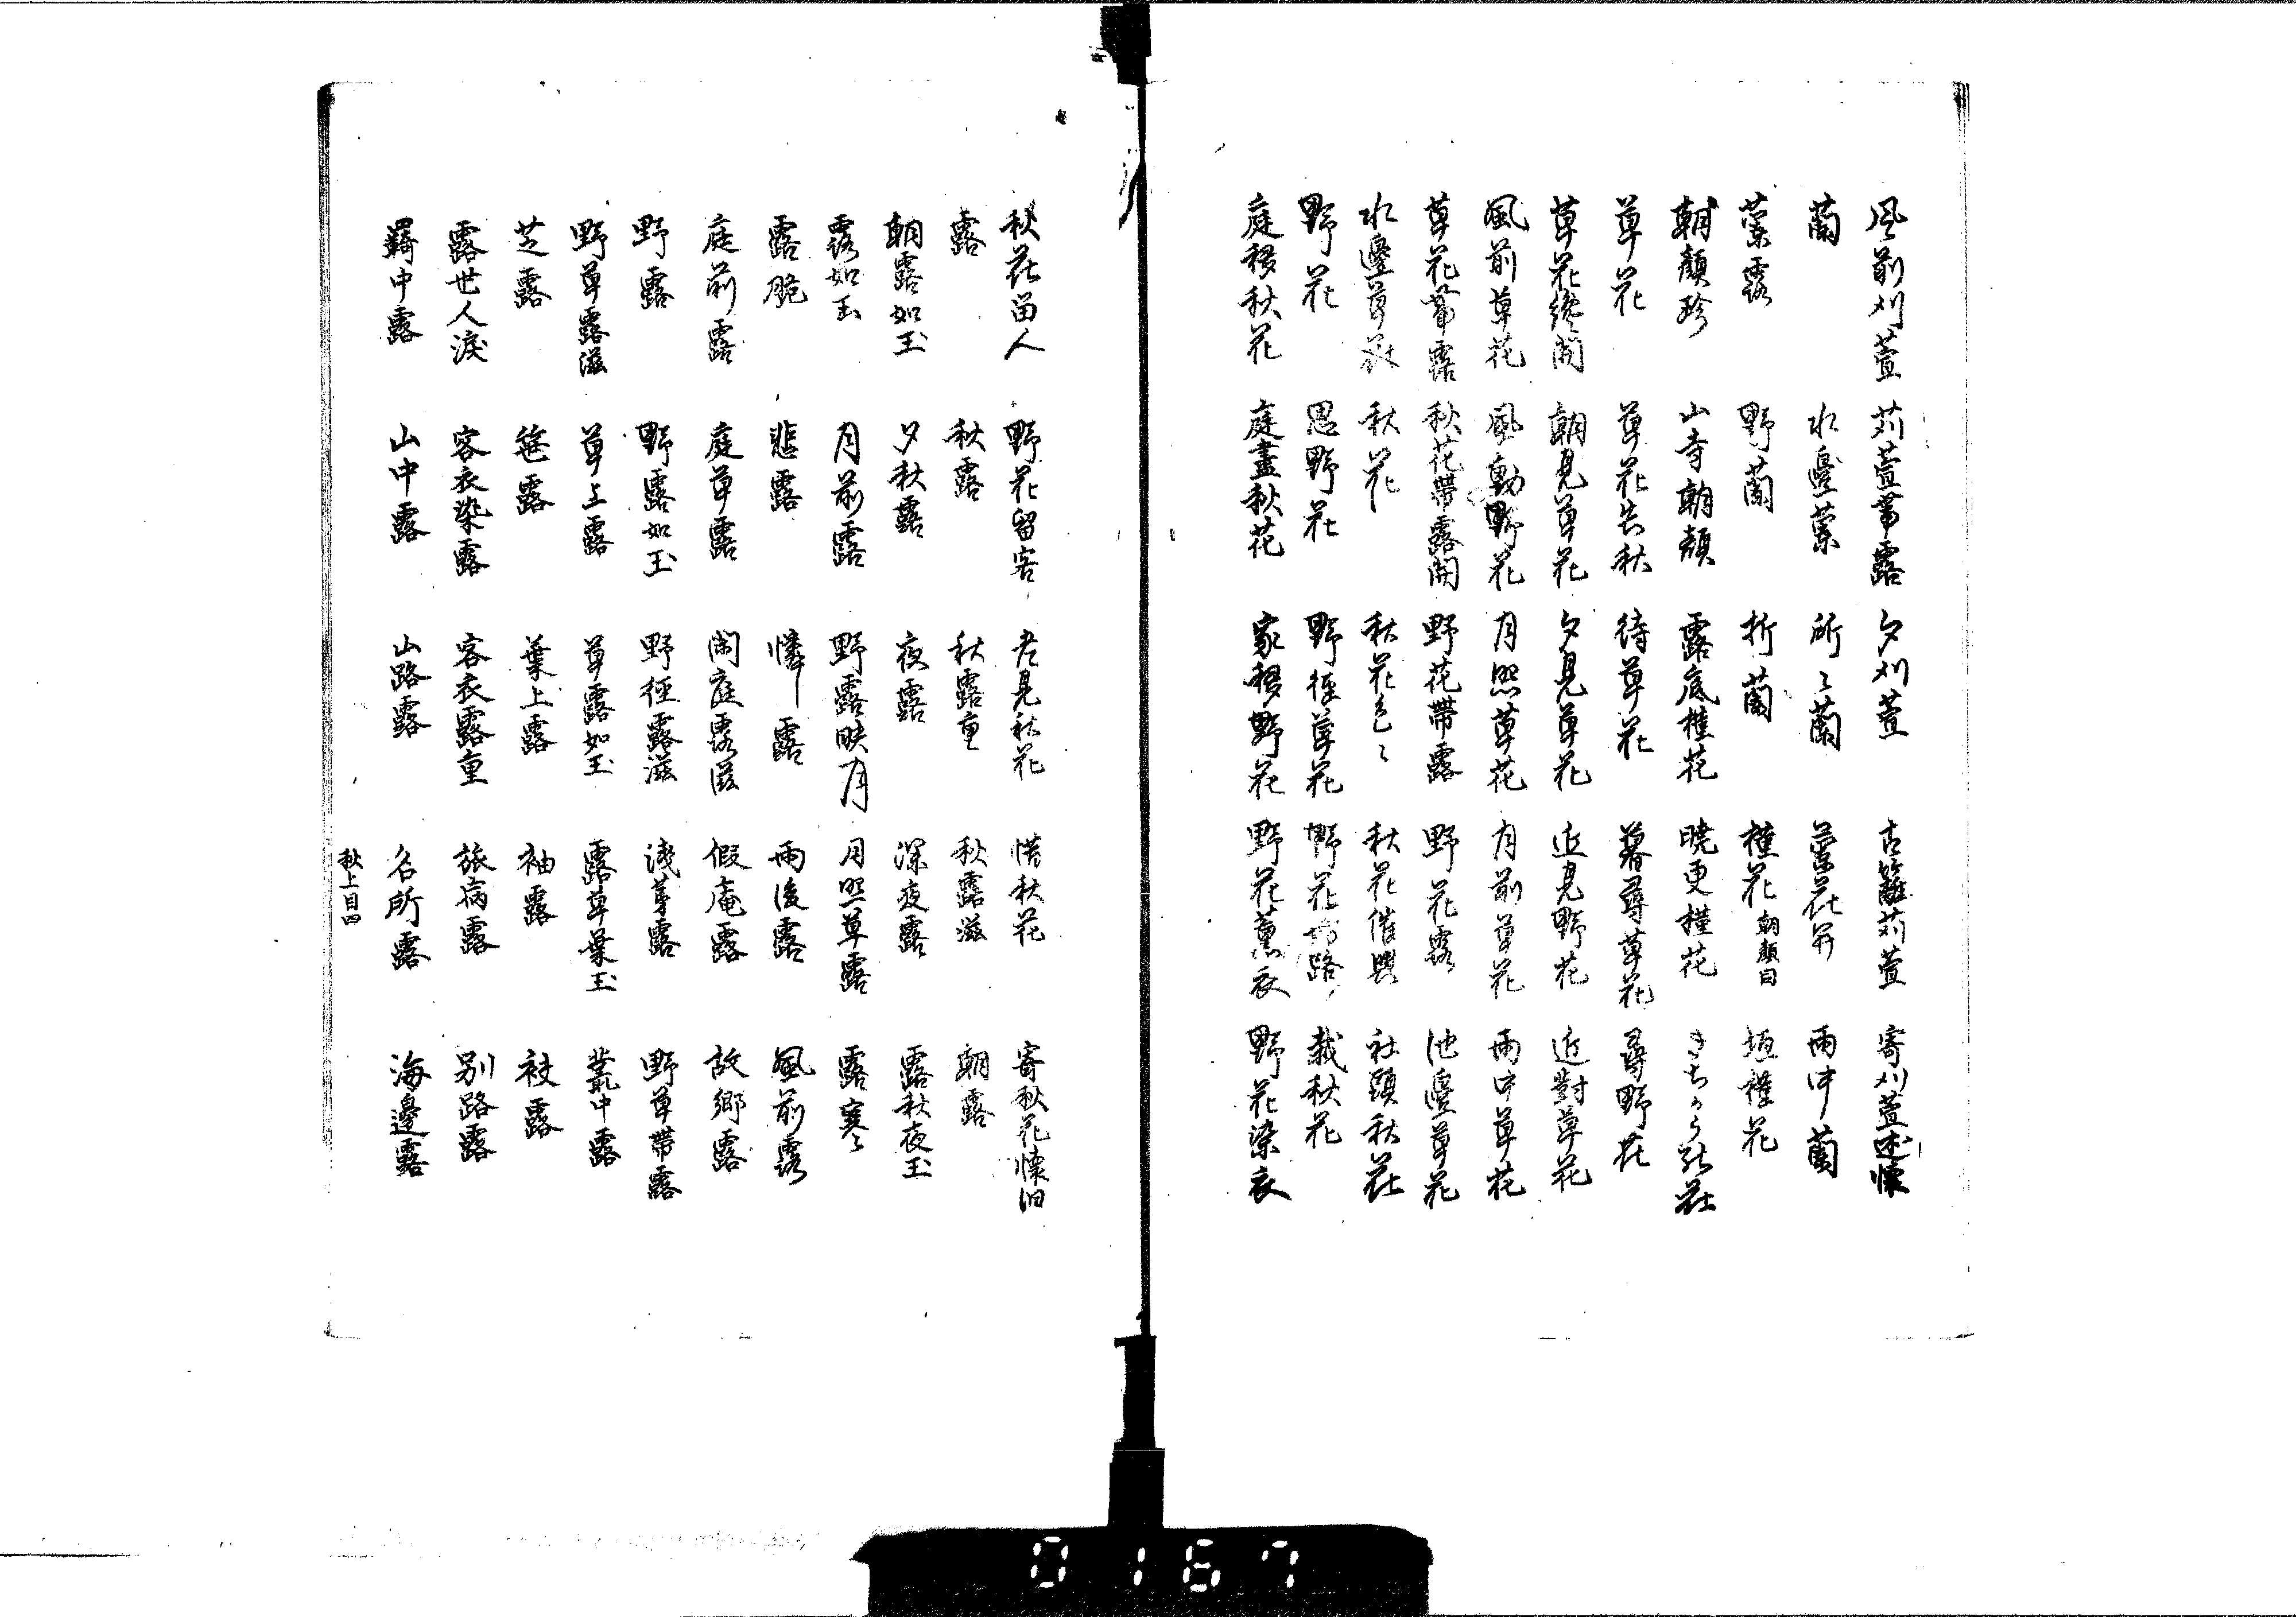 風前刈萱　苅萱帯露　夕刈萱　古籬苅萱　寄刈萱述懐
蘭　水邊蘭　所〻蘭　蘭花
野蘭　折蘭　槿花 朝顔同　垣槿花
朝顔　山寺朝顔　露底槿花　暁更槿花　きちかうの花
草花　草花告秋　待草花　暮尋草花　尋野花
草花纔開　朝見草花　夕見草花　近見野花　近對草花
風前草花　風動野花　月照草花　月前草花　雨中草花
草花帯露　秋花帯露開　野花帯露　野花露　池邊草花
水邊草花　秋花　秋花色〻　秋花催興　社頭秋花
野花　思野花　野徑草花　野花　路　栽秋花
庭移秋花　庭盡秋花　家移野花　野花薫衣　野花染衣
秋花留人　野花留客　老見秋花　惜秋花　寄秋花懐旧
露　秋露　秋露重　秋露滋　朝露
朝露如玉　夕秋露　夜露　深夜露　露秋夜玉
露如玉　月前露　野露映月　月照草露　露寒〻
露脆　悲露　憐露　雨後露　風前露
庭前露　庭草露　閑庭露滋　假庵露　故郷露
野露　野露如玉　野徑露滋　浅茅露　野草帯露
野草露滋　草上露　草露如玉　露草葉玉　叢中露
芝露　笹露　葉上露　袖露　袂露
露世人涙　客衣染露　客衣露重　旅宿露　別路露
羇中露　山中露　山路露　名所露　海邊露
秋上目四
0167